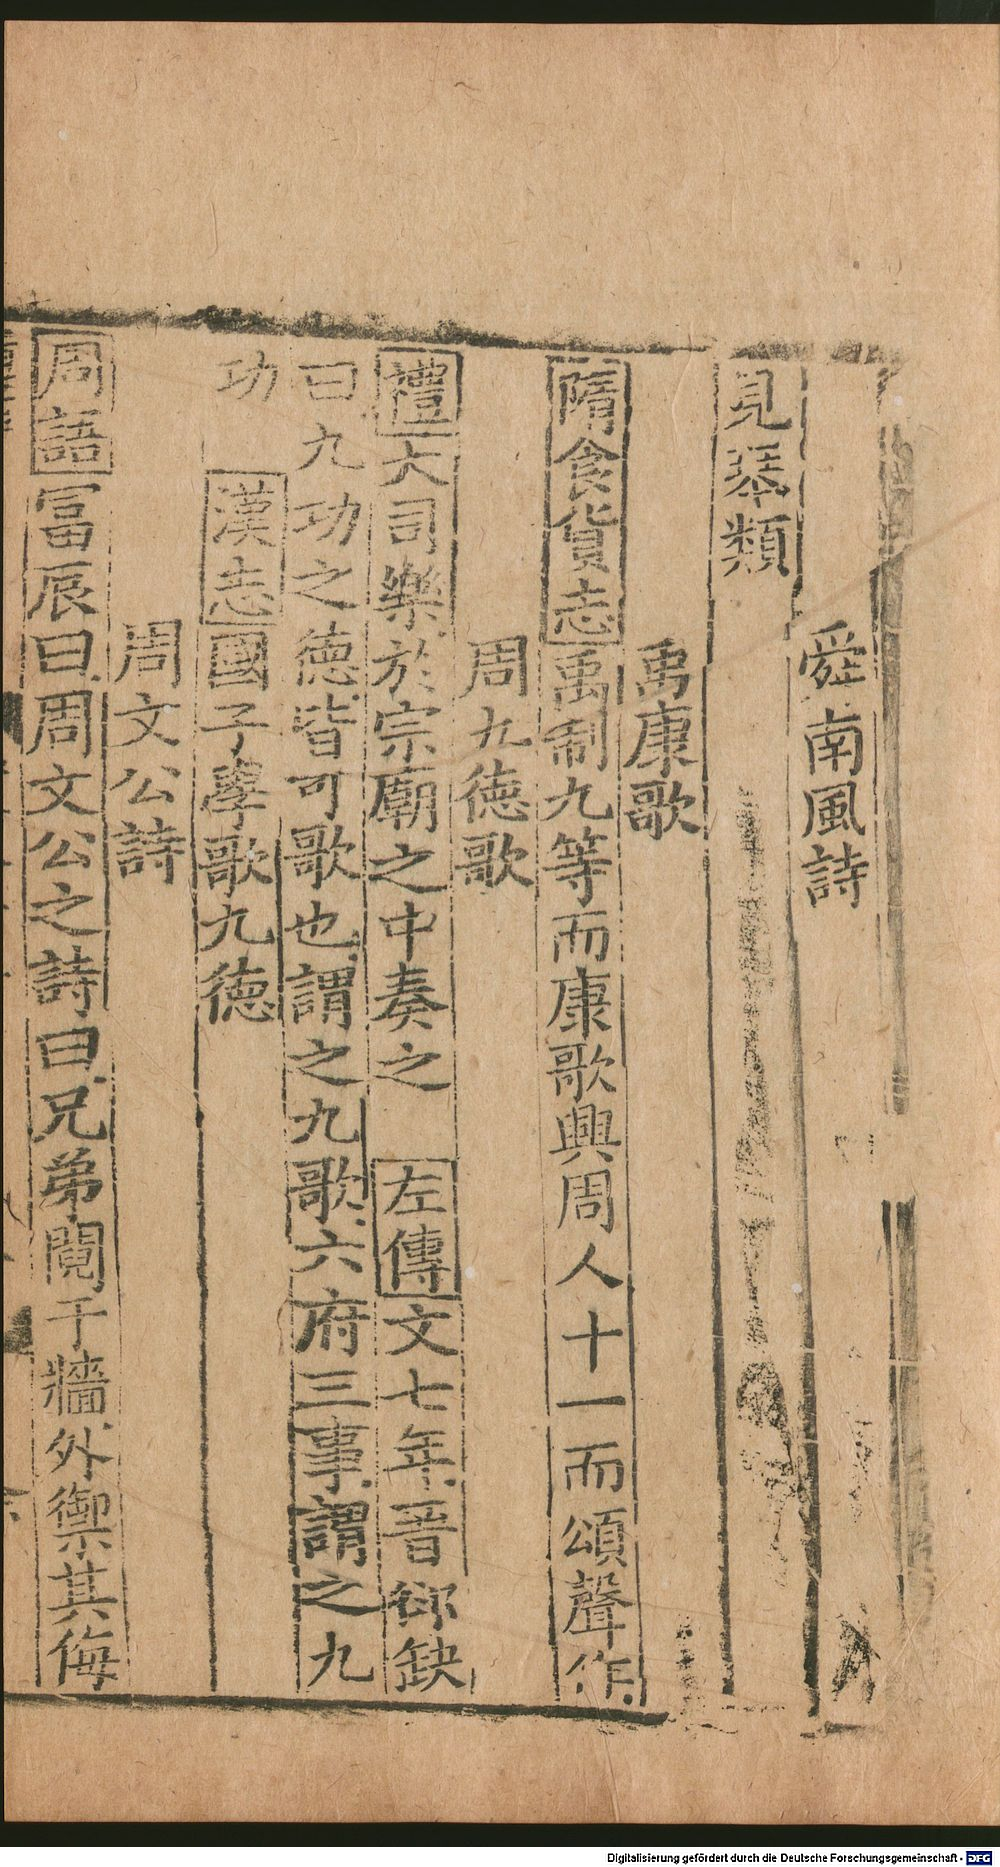 舜南風詩
見琴類
禹康歌
隋食貨志禹制九等而康歌興周人十一而頌聲作
周九徳歌
禮大司樂於宗廟之中奏之 左傳文七年晉郤缺
曰九功之德皆可歌也謂之九歌六府三事謂之九
功 漢志國子學歌九德
周文公詩
周語冨辰曰周文公之詩曰兄弟䦧于牆外禦其侮
Digitalisierung gefördert durch die Deutsche Forschungsgemeinschaft - DFG